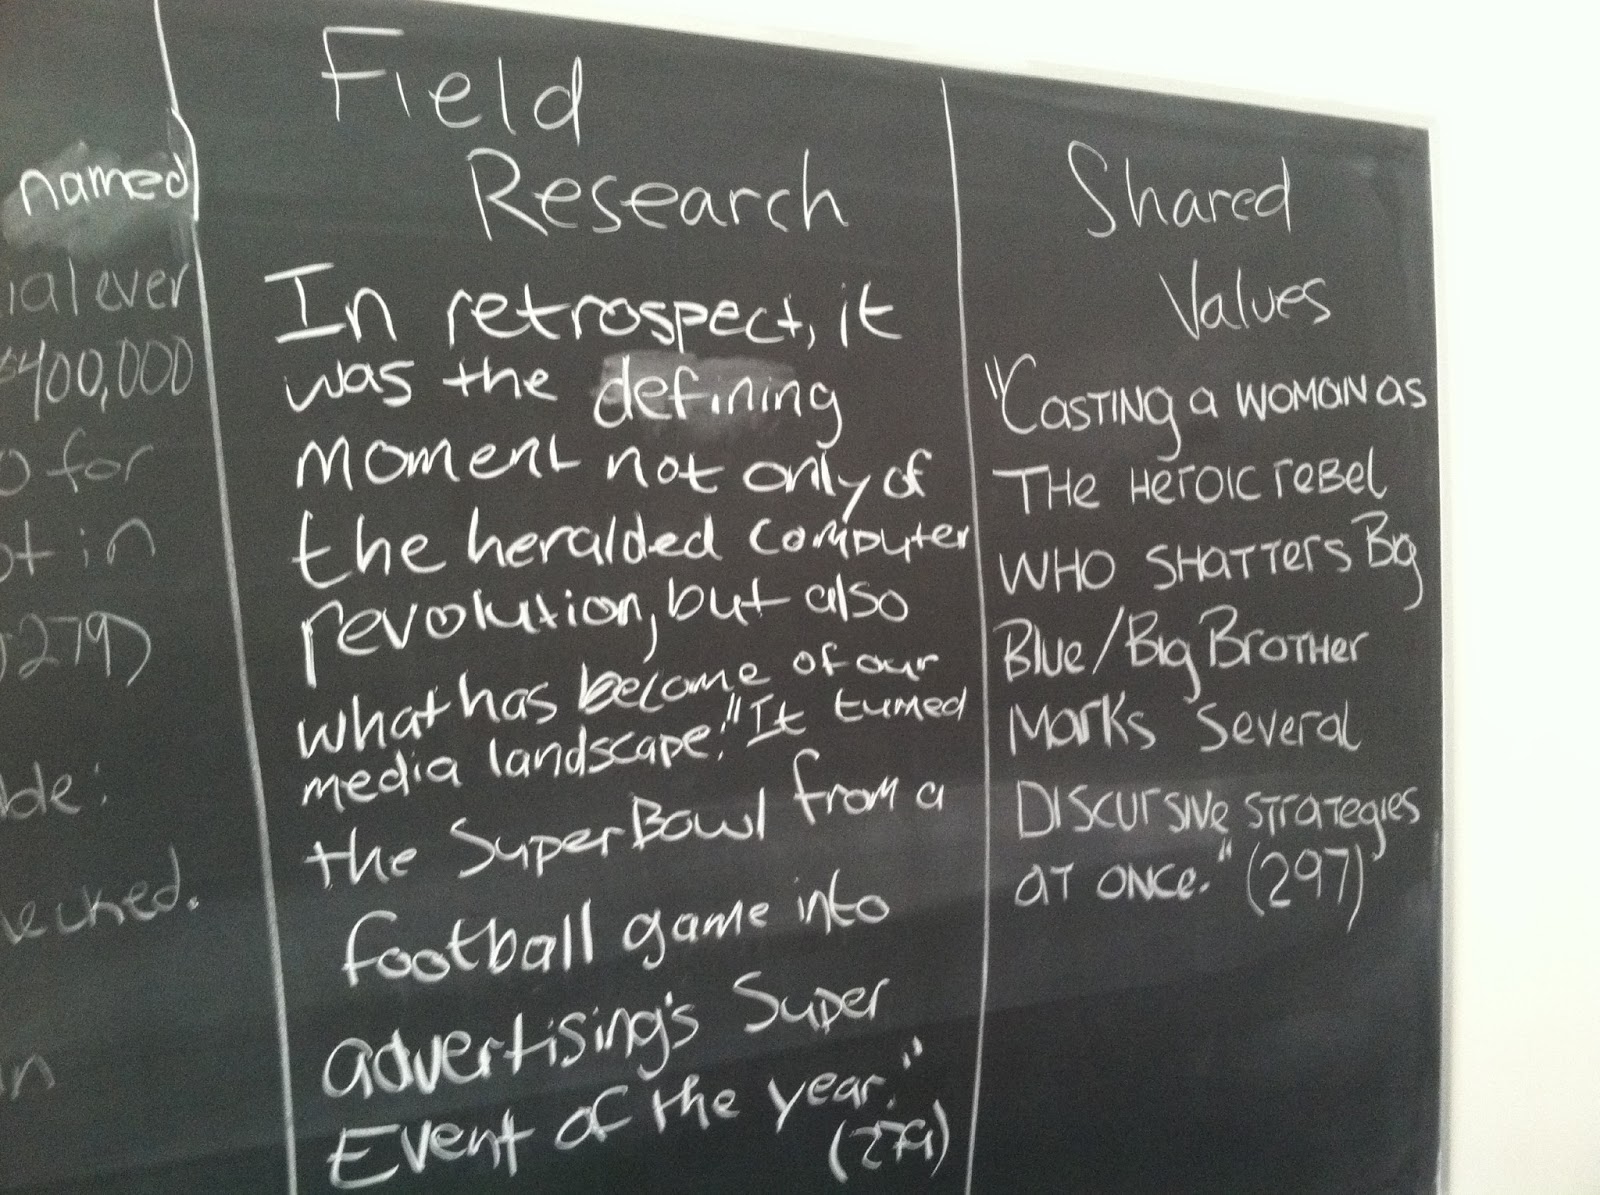 named
ever
$400,000
for
in
279)
Field
Research
In retrospect, it
was the defining
moment not only of
the heralded computer
revolution, but also
what has become of our
media landscape." It turned
the Super Bowl from a
football game into
advertising's Super
Event of the year."
(279)
Shared
Values
"Casting a woman as
THe Heroic rebel
WHO SHATTERS Big
Blue/Big BroTHer
Marks Several
DISCURSIVE STraTegies
aT once." (297)